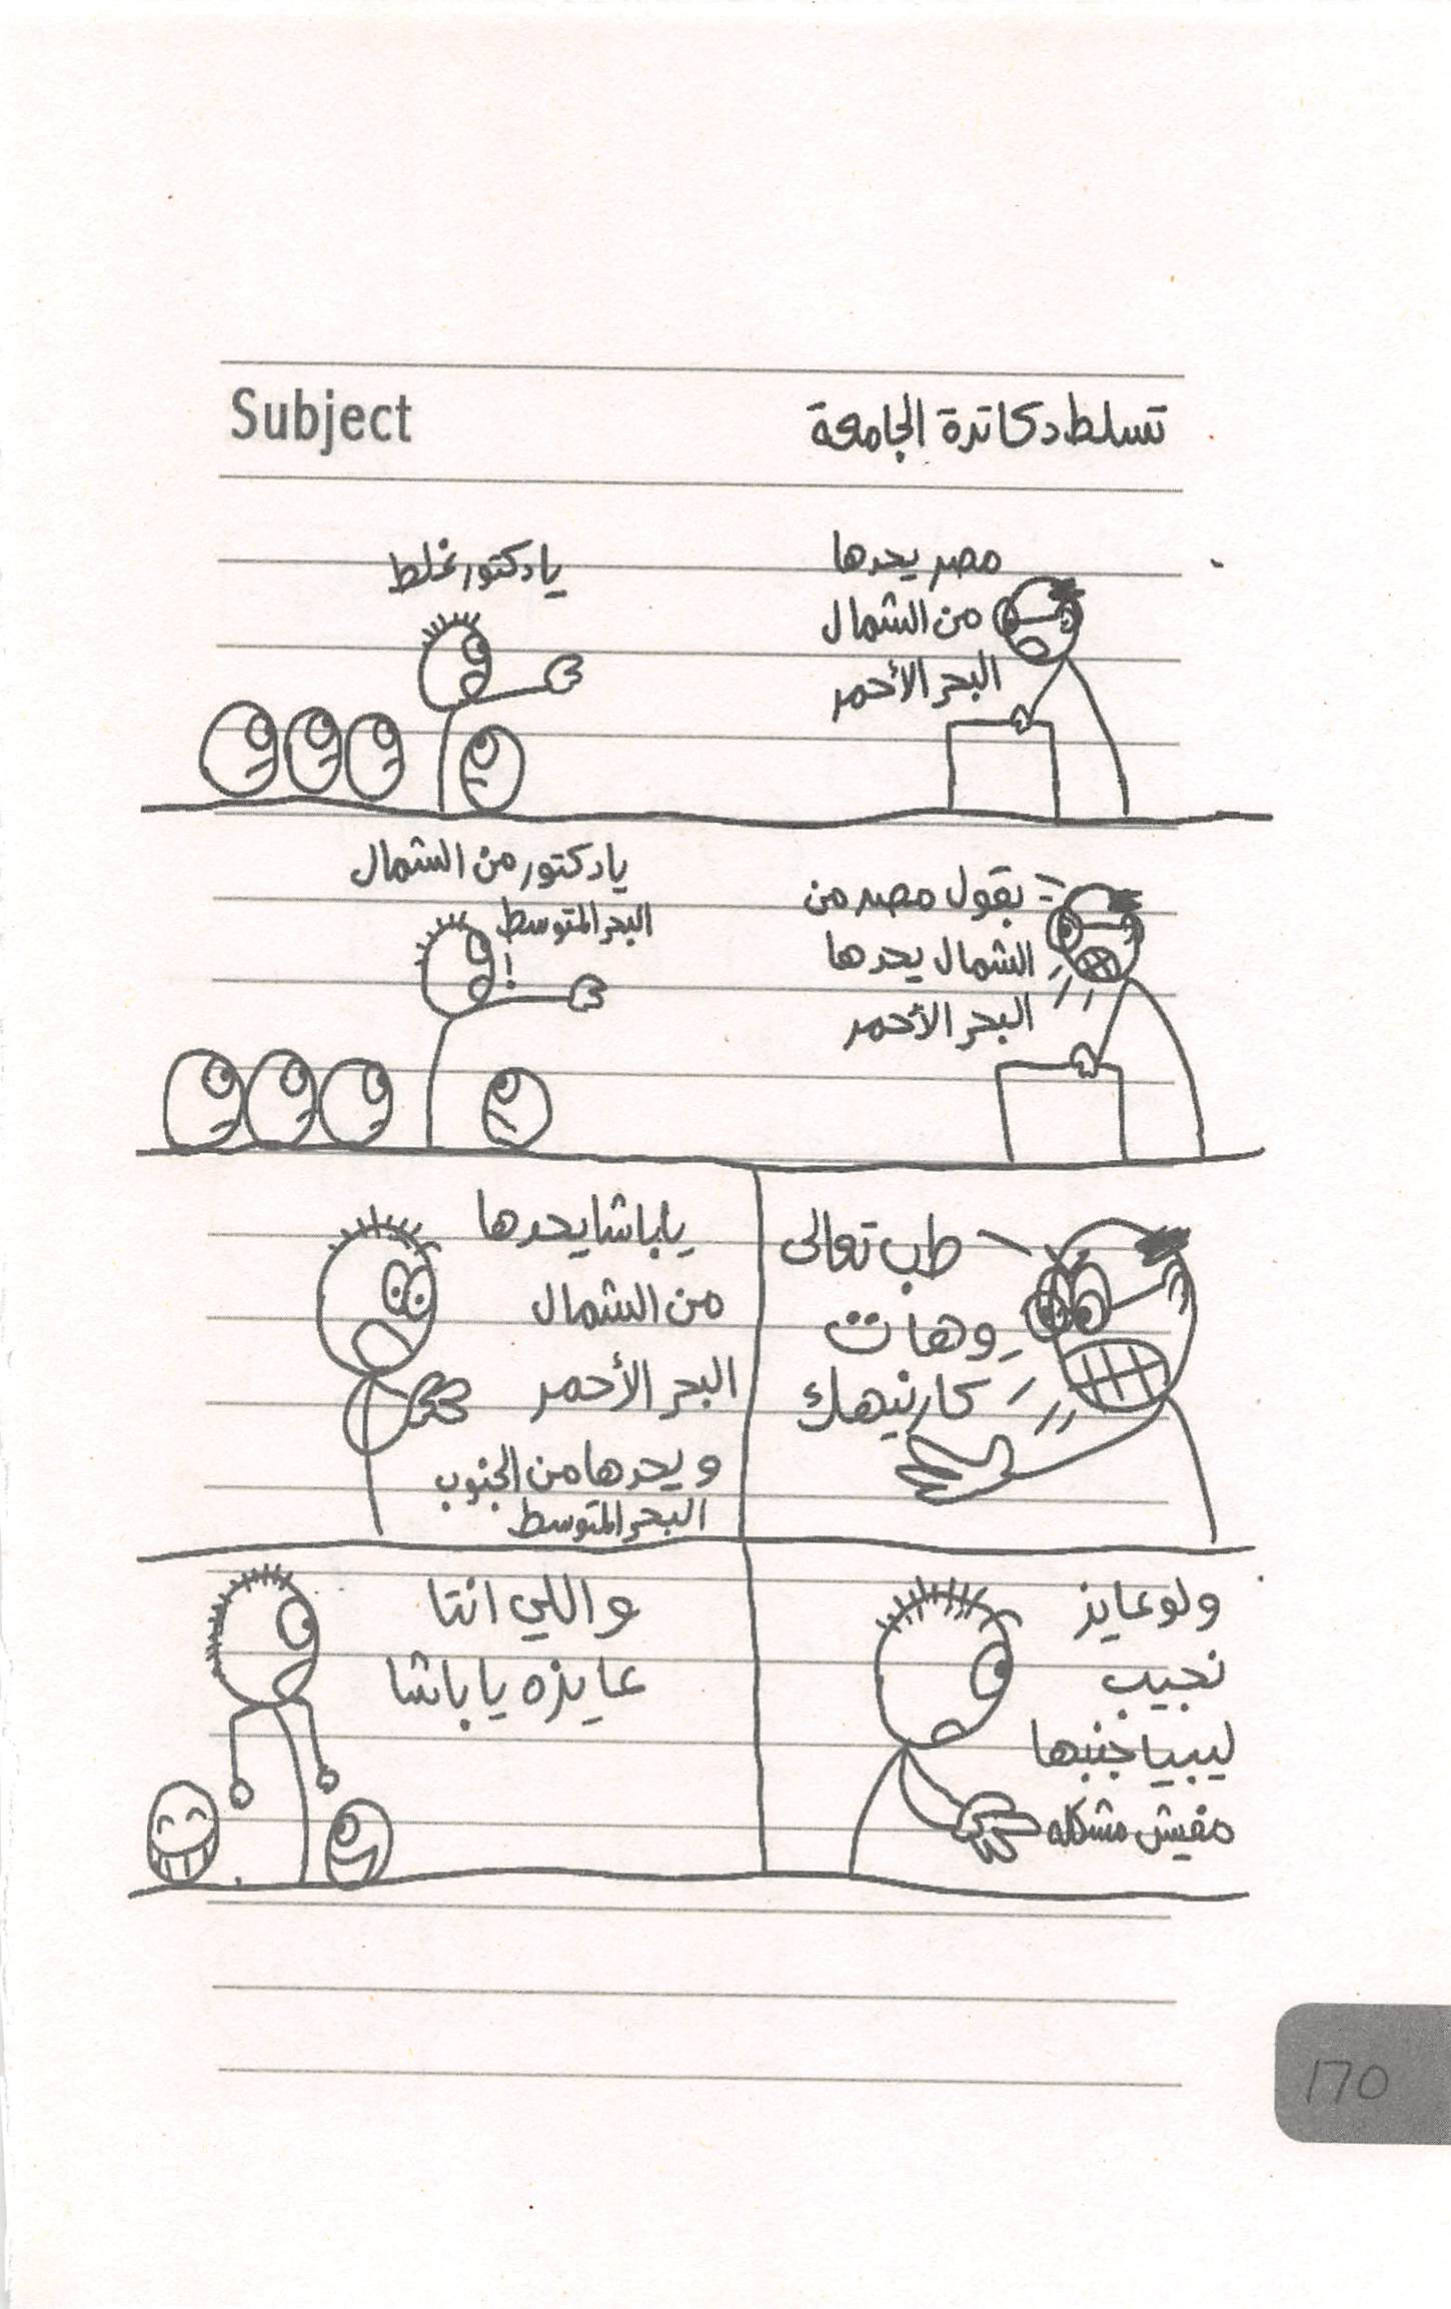 Subject
تسلط دكاترة الجامعة
مصر يحدها
من الشمال
البحر الأحمر
يا دكتور غلط
بقول مصر من
الشمال يحدها
البحر الأحمر
يا دكتور من الشمال
البحر المتوسط
!
طب تعالى
وهات
كارنيهك
يا باشا يحدها
من الشمال
البحر الأحمر
ويحدها من الجنوب
البحر المتوسط
ولو عايز
نجيب
ليبيا جنبها
مفيش مشكله
واللي انتا
عايزه يا باشا
170